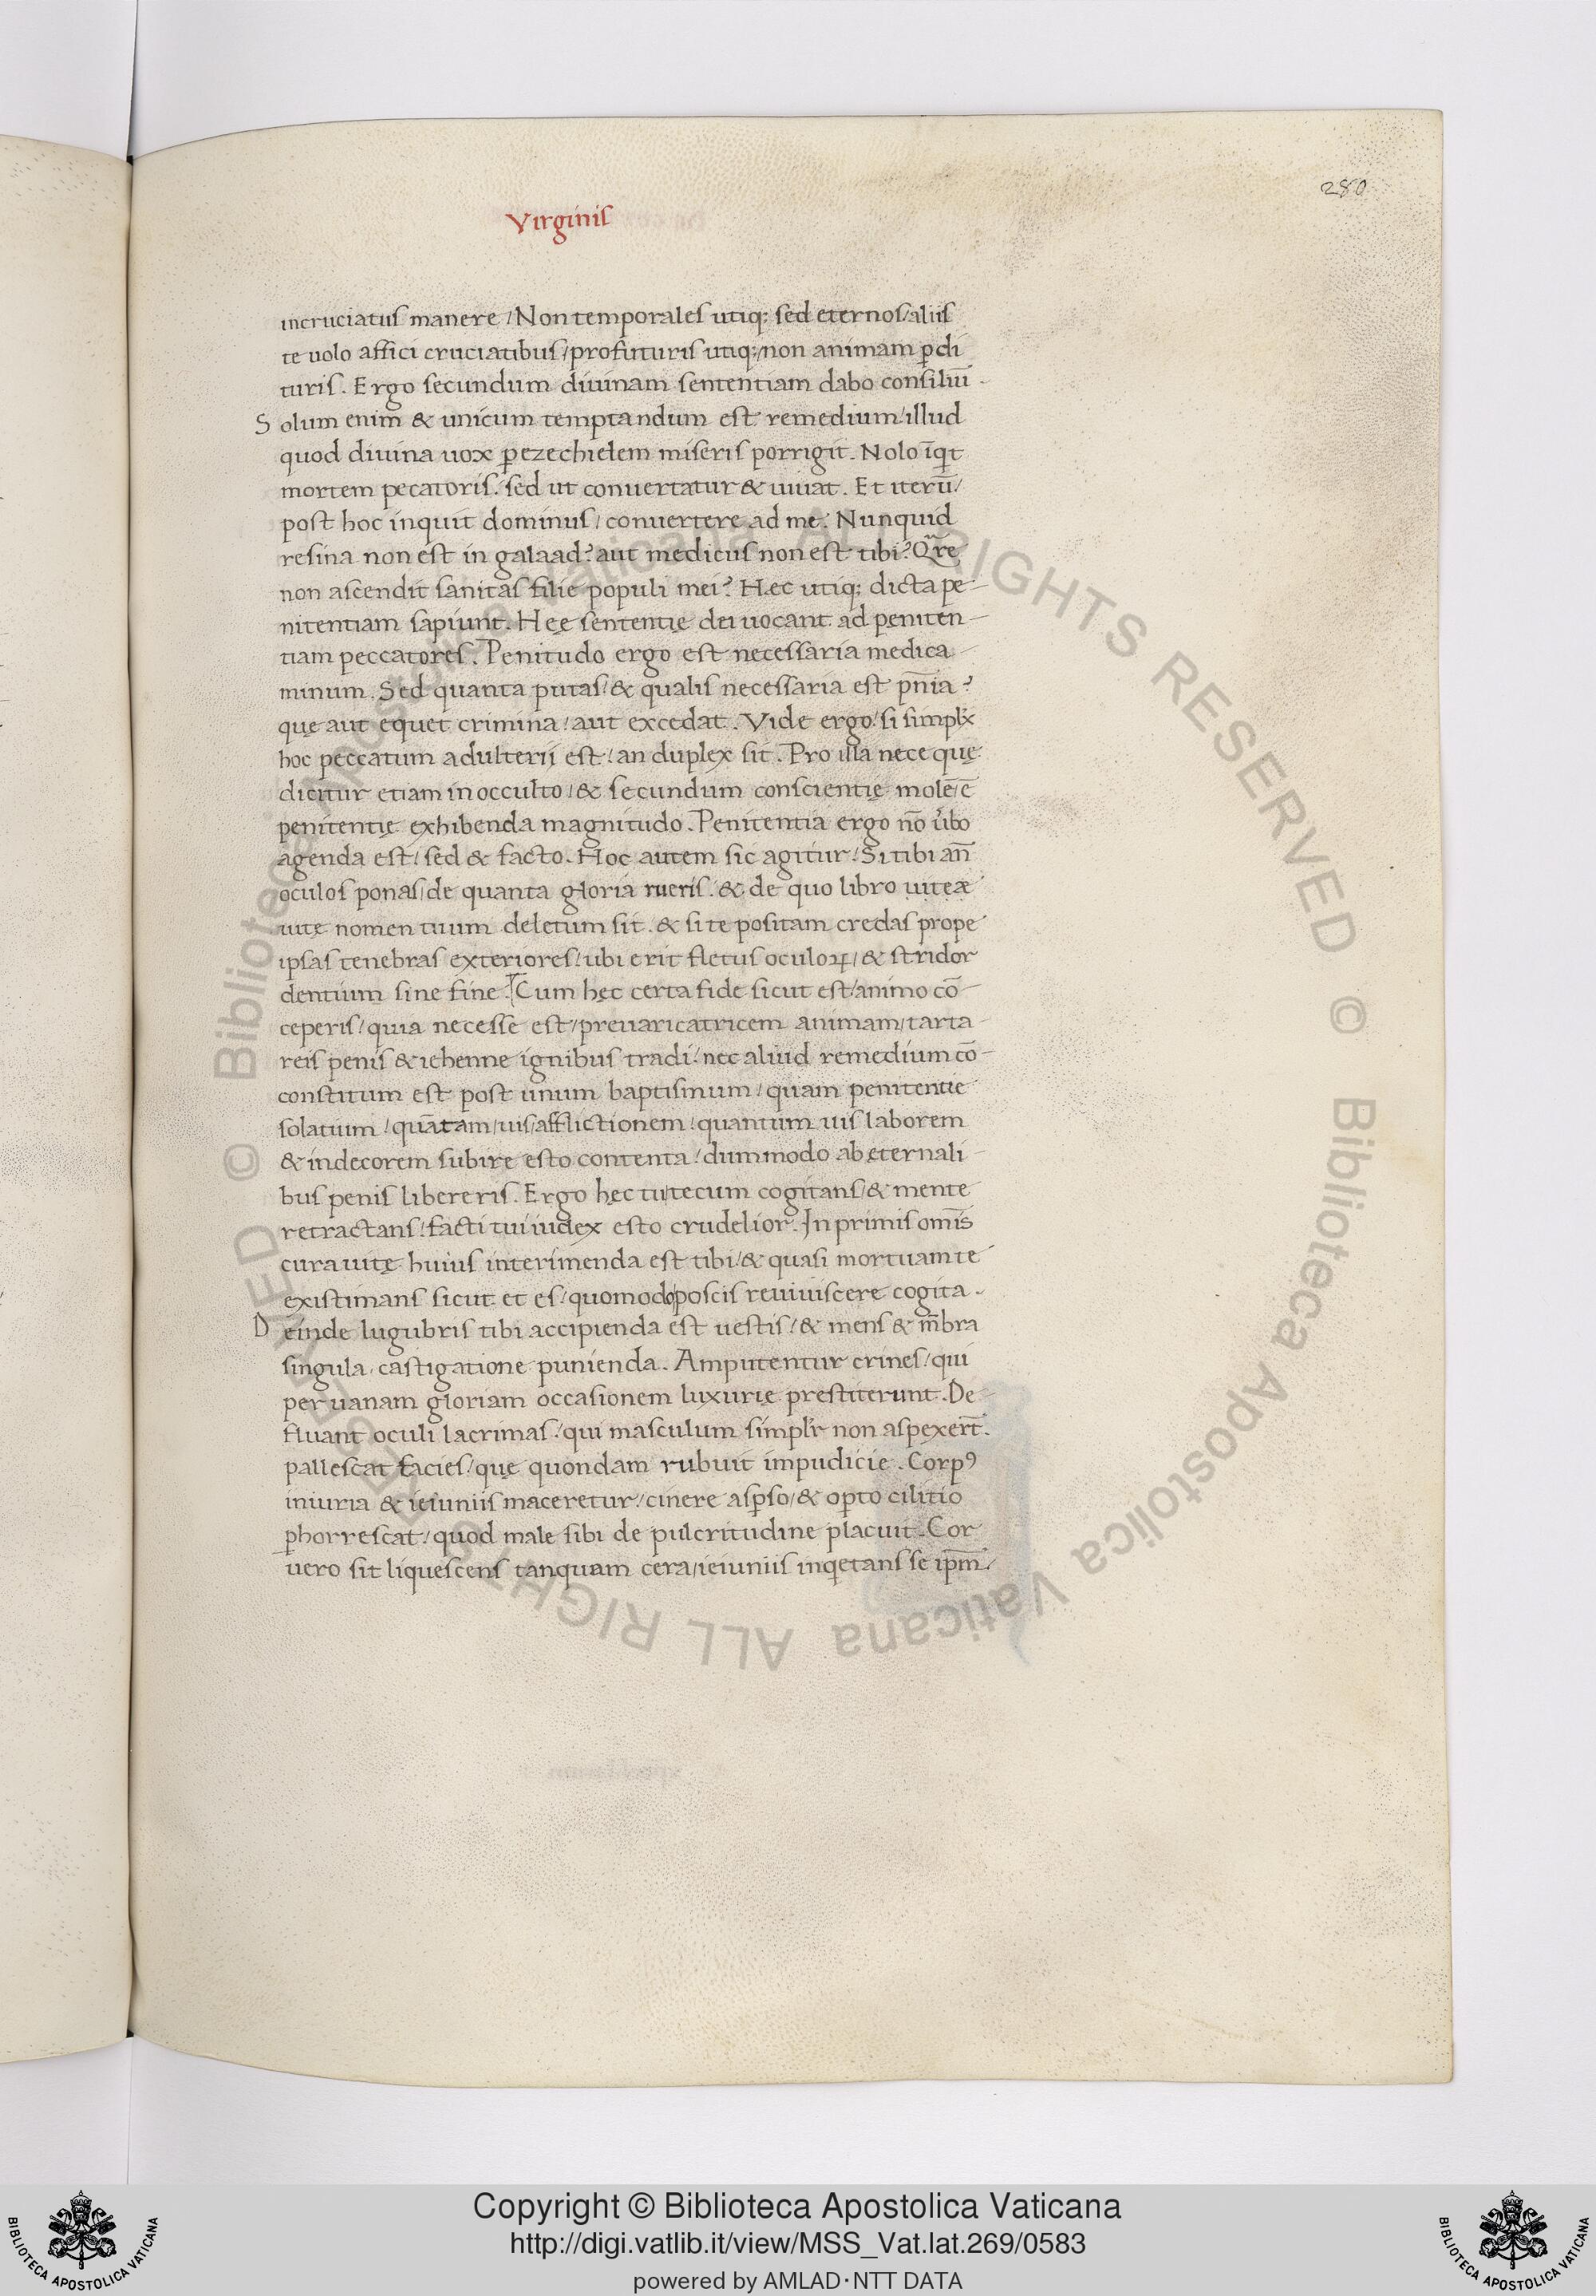 280
Virginis
incruciatus manere / Non temporales utiq; sed eternos / aliis
te uolo affici cruciatibus / profuturis utiq; / non animam ꝑdi
turis. Ergo secundum diuinam sententiam dabo consiliū -
Solum enim & unicum temptandum est remedium / illud
quod diuina uox ꝑ ezechielem miseris porrigit. Nolo īqt
mortem pecatoris. sed ut conuertatur & uiuat. Et iterū /
post hoc inquit dominus / conuertere ad me. Nunquid
resina non est in galaad? aut medicus non est tibi? Qre
non ascendit sanitas filie populi mei? Hec utiq; dicta pe-
nitentiam sapiunt. Hęe sententię dei uocant ad peniten-
tiam peccatores. Penitudo ergo est necessaria medica-
minum. Sed quanta putas / & qualis necessaria est pn̄ia?
quę aut equet crimina / aut excedat. Vide ergo / si simplx
hoc peccatum adulterii est / an duplex sit. Pro illa nece quę
dicitur etiam in occulto / & secundum conscientię molē / ē
penitentię exhibenda magnitudo. Penitentia ergo nō u̓bo
agenda est / sed & facto. Hoc autem sic agitur / Si tibi an̄
oculos ponas / de quanta gloria rueris. & de quo libro uiteæ
uitę nomen tuum deletum sit. & si te positam credas prope
ipsas tenebras exteriores / ubi erit fletus oculoꝝ / & stridor
dentium sine fine. Cum hęc certa fide sicut est / animo cō-
ceperis / quia necesse est / preuaricatricem animam / tarta-
reis penis & iehenne ignibus tradi / nec aliud remedium cō-
constitum est post unum baptismum / quam penitentie
solatium / quātam / uis / afflictionem / quantum uis laborem
& indecorem subire esto contenta / dummodo ab ęternali-
bus penis libereris. Ergo hęc tu / tecum cogitans / & mente
retractans / facti tui iudex esto crudelior. In primis omīs
cura uitę huius interimenda est tibi / & quasi mortuam te
existimans sicut et es / quomodo poscis reuiuiscere cogita.
Deinde lugubris tibi accipienda est uestis / & mens & mēbra
singula castigatione punienda. Amputentur crines / qui
per uanam gloriam occasionem luxurię prestiterunt. De-
fluant oculi lacrimas / qui masculum simplr non aspexert̄.
pallescat facies / quę quondam rubuit impudicie. Corpꝰ
iniuria & ieiuniis maceretur / cinere aspso / & opto cilitio
ꝑhorrescat / quod male sibi de pulcritudine placuit. Cor
uero sit liquescens tanquam cera / ieiuniis inqetans se ipm̄ /
Copyright © Biblioteca Apostolica Vaticana
http://digi.vatlib.it/view/MSS_Vat.lat.269/0583
powered by AMLAD·NTT DATA
BIBLIOTECA APOSTOLICA VATICANA
BIBLIOTECA APOSTOLICA VATICANA
© Biblioteca Apostolica Vaticana ALL RIGHTS RESERVED © Biblioteca Apostolica Vaticana ALL RIGHTS RESERVED